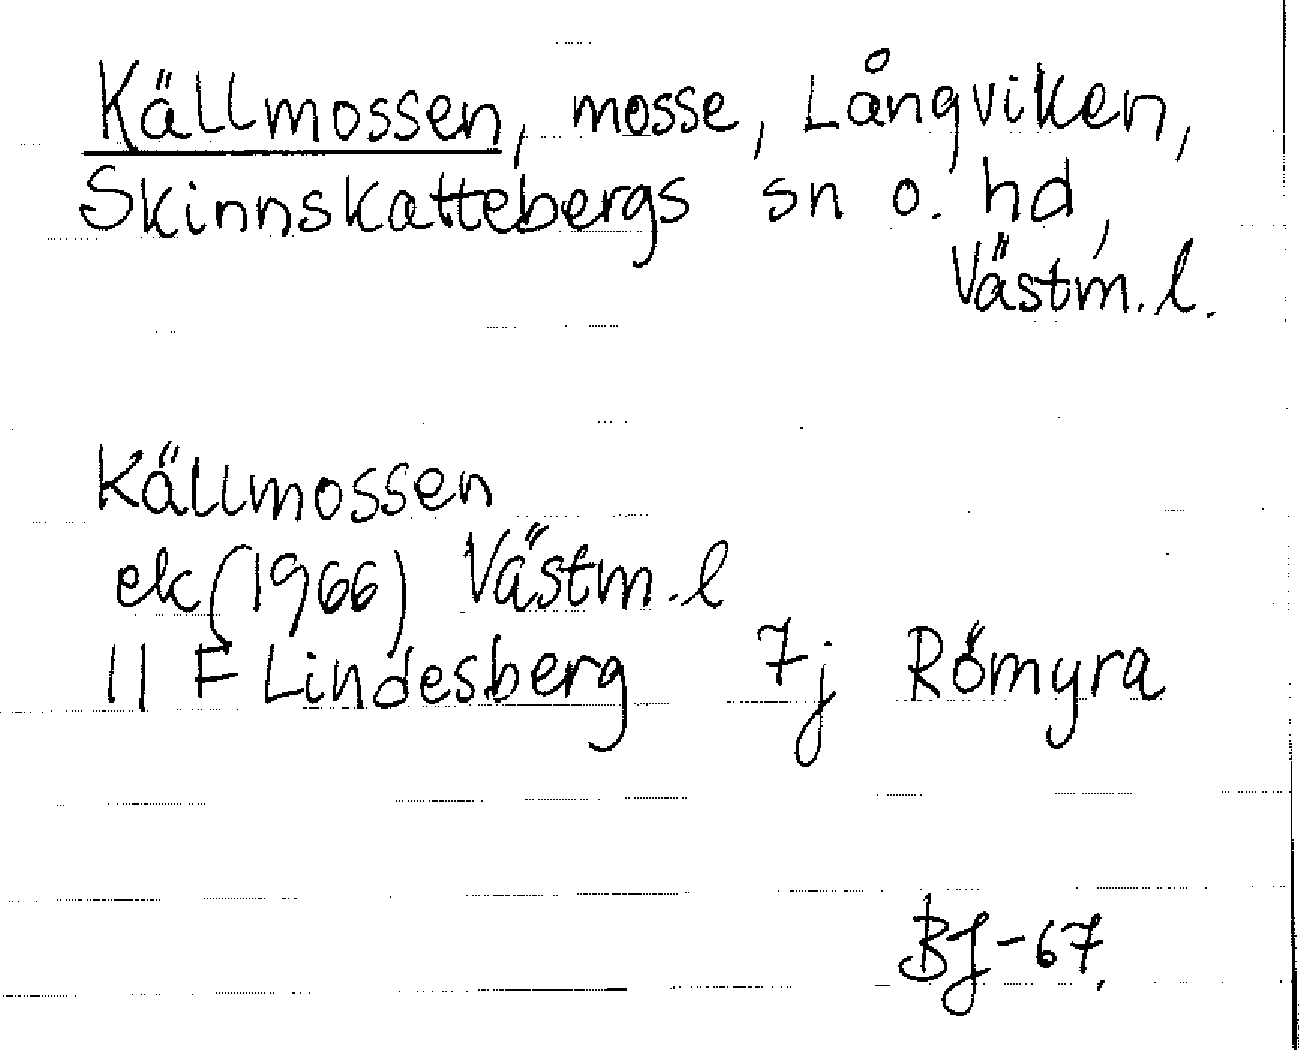 Källmossen, mosse, Långviken,
Skinnskattebergs sn o. hd,
Västm. l.
Källmossen
ek (1966) Västm. l
11 F Lindesberg 7j Römyra
BJ-67.